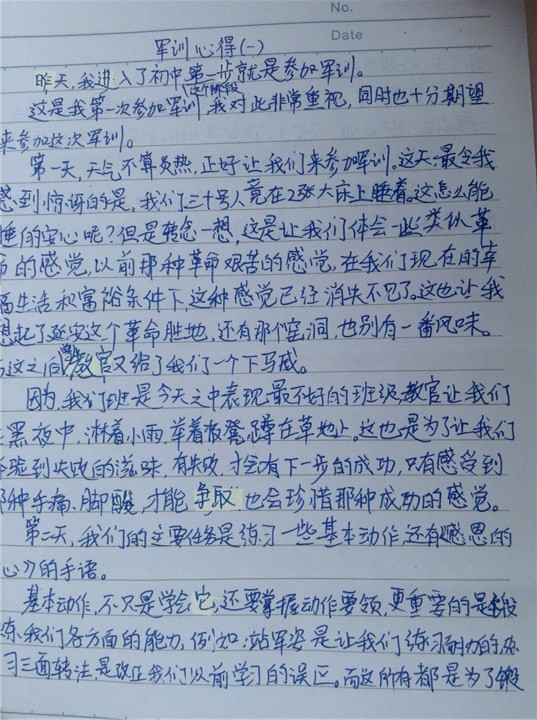 No.
Date
军训心得(一)
昨天,我进入了初中第一步就是参加军训。
这个阶段
这是我第一次参加军训,我对此非常重视,同时也十分期望
来参加这次军训。
第一天,天气不算炎热,正好让我们来参加军训。这天最令我
感到惊讶的是,我们三十号人竟在2张大床上睡着。这怎么能
睡的安心呢?但是转念一想,这是让我们体会一些类似革
命的感觉,以前那种革命艰苦的感觉,在我们现在的幸
福生活和富裕条件下,这种感觉已经消失不见了。这也让我
想起了延安这个革命胜地,还有那个窑洞,也别有一番风味。
这之间教官又给了我们一个下马威。
因为,我们班是今天之中表现最不好的班级,教官让我们
黑夜中,淋着小雨,举着板凳,蹲在草地上。这也是为了让我们
体验到失败的滋味,有失败,才会有下一步的成功,只有感受到
那种手痛、脚酸,才能争取也会珍惜那种成功的感觉。
第二天,我们的主要任务是练习一些基本动作,还有《感恩的
心》的手语。
基本动作,不只是学会它,还要掌握动作要领,更重要的是锻
练我们各方面的能力,例如:站军姿是让我们练习耐力的,练
习三面转法,是改正我们以前学习的误区。而这所有都是为了锻